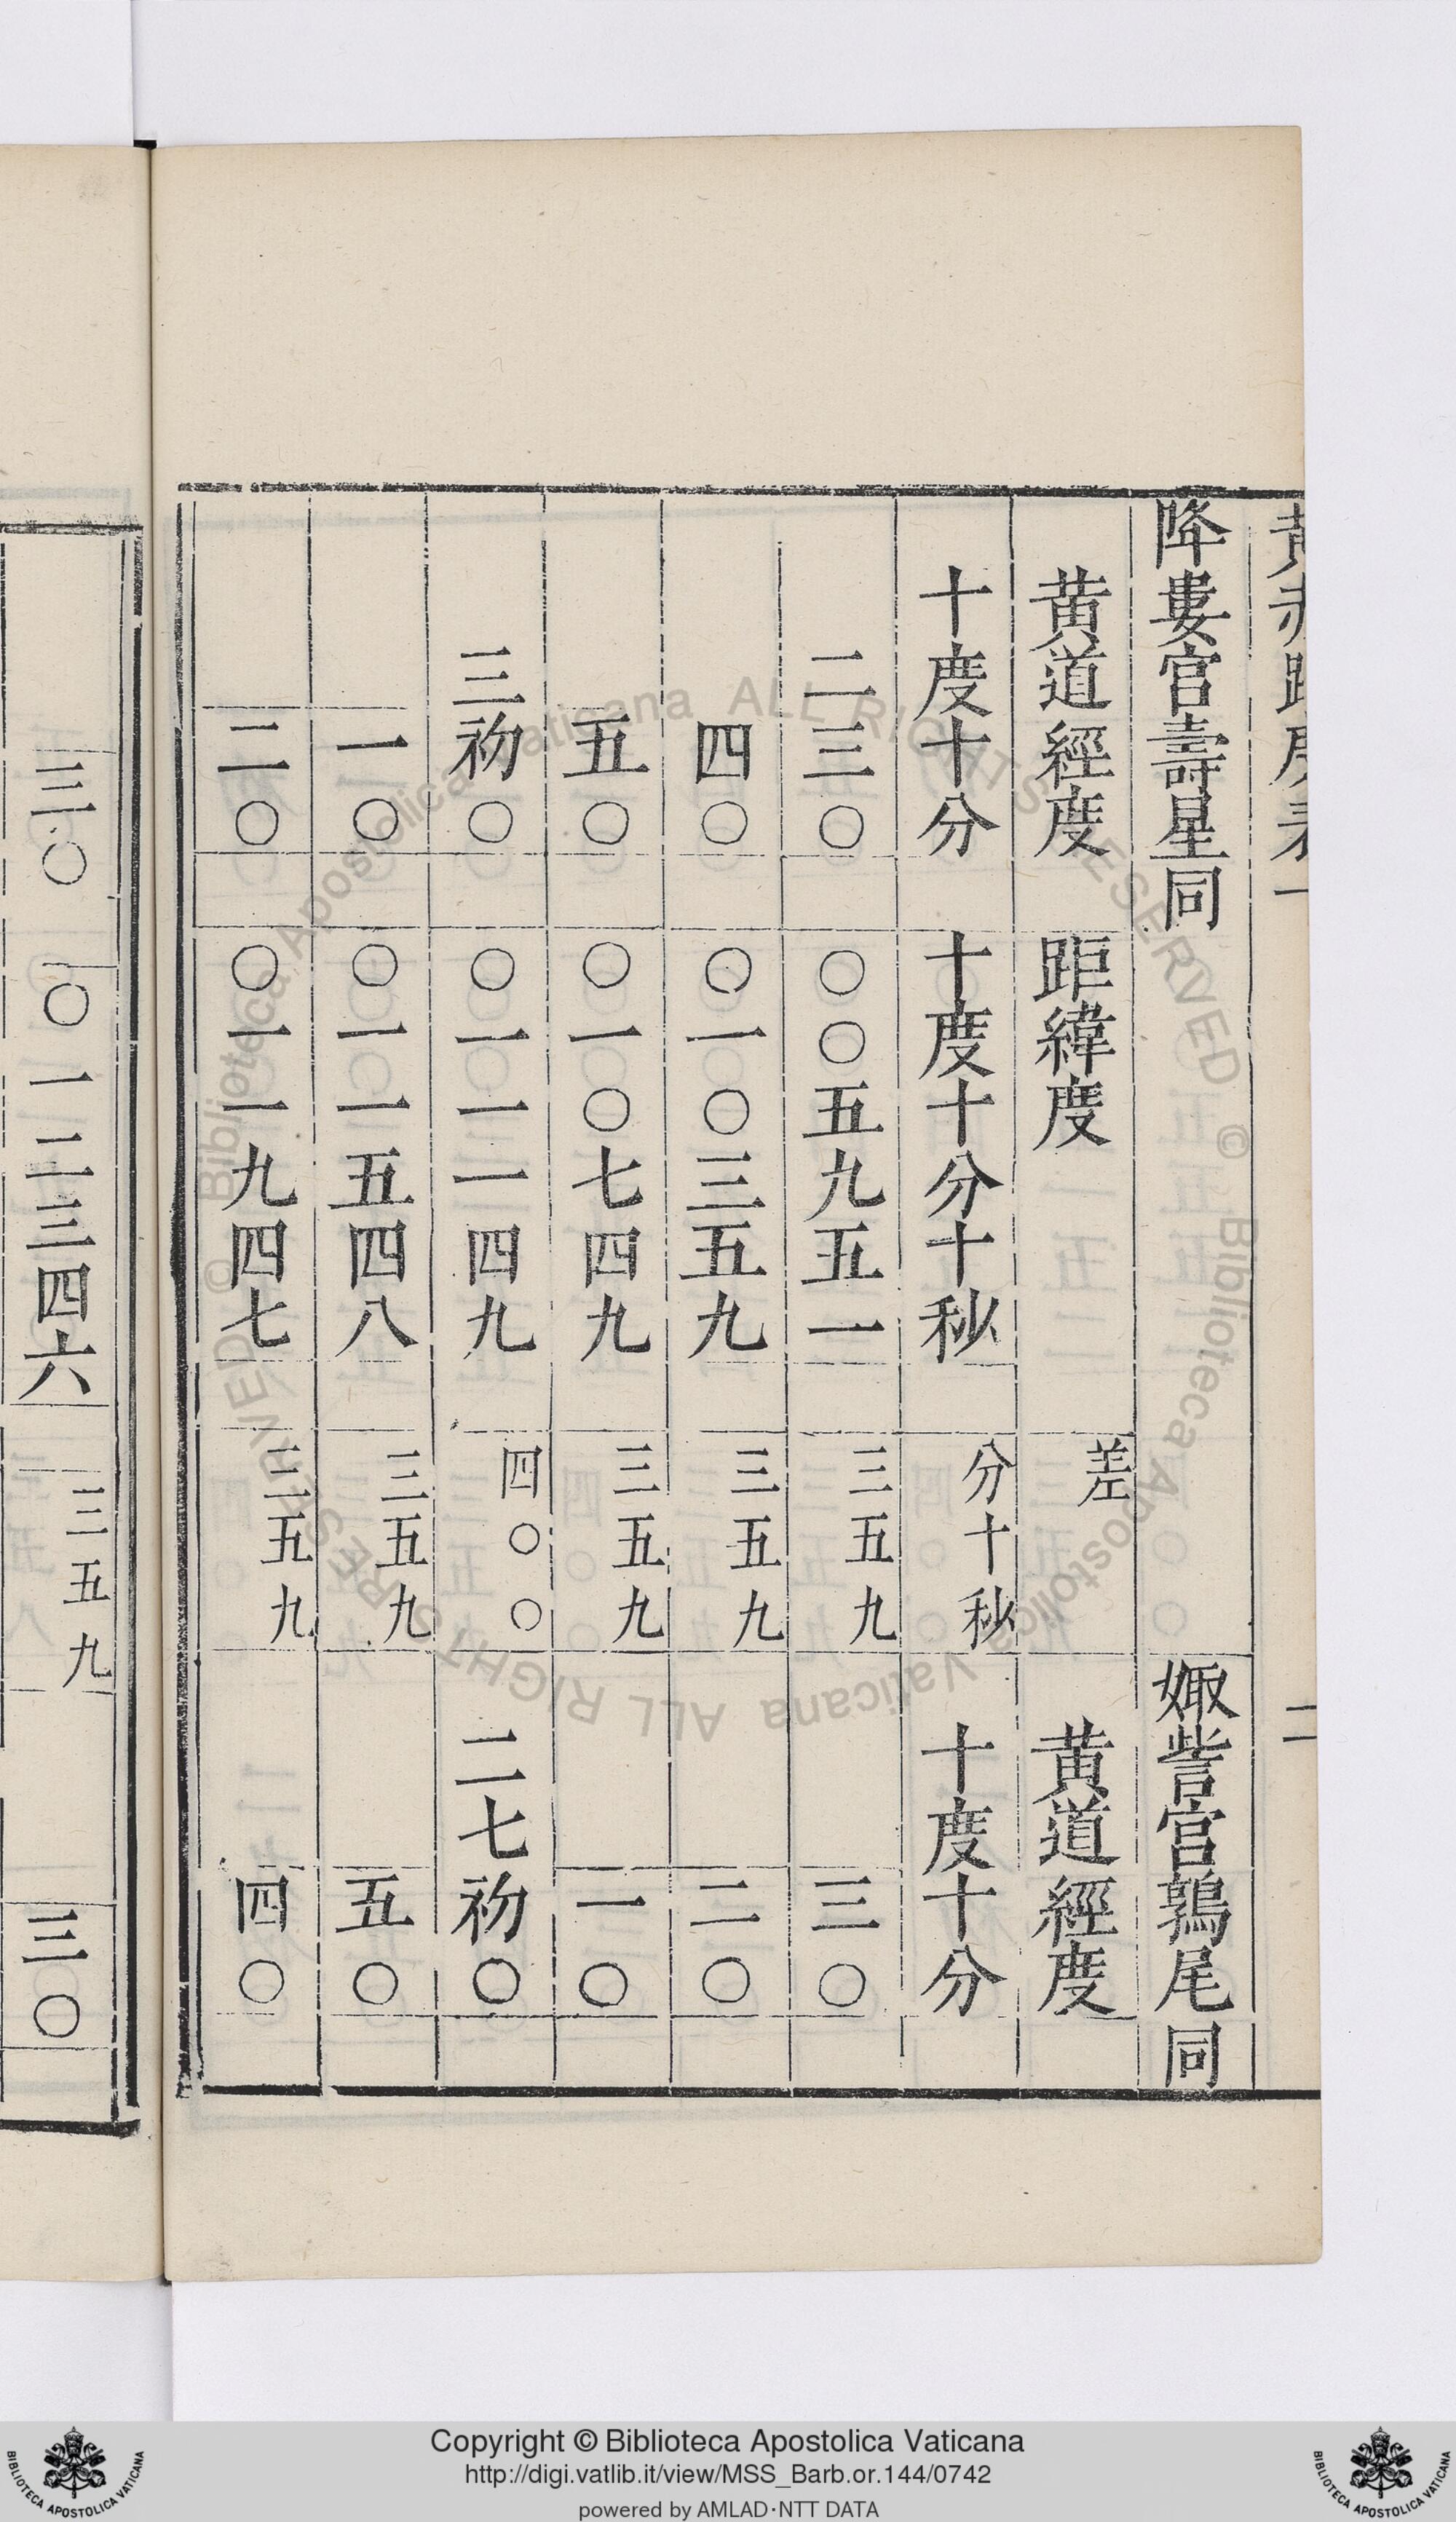 黃赤距度表一 二
降婁宮壽星同 娵訾宮鶉尾同
黃道經度 距緯度 差 黃道經度
十度十分 十度十分十秒 分十秒 十度十分
二三〇 〇〇五九五一 三五九 三〇
四〇 〇一〇三五九 三五九 二〇
五〇 〇一〇七四九 三五九 一〇
三初〇 〇一一一四九 四〇〇 二七初〇
一〇 〇一一五四八 三五九 五〇
二〇 〇一一九四七 三五九 四〇
三〇 〇一二三四六 三五九 三〇
Biblioteca Apostolica Vaticana ALL RIGHTS RESERVED ©
Biblioteca Apostolica Vaticana ALL RIGHTS RESERVED ©
Copyright © Biblioteca Apostolica Vaticana
http://digi.vatlib.it/view/MSS_Barb.or.144/0742
powered by AMLAD·NTT DATA
BIBLIOTECA APOSTOLICA VATICANA
BIBLIOTECA APOSTOLICA VATICANA